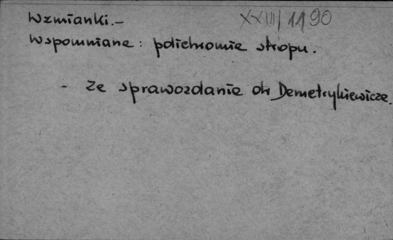 Wzmianki.–
XXIII/1190
Wspomniane: polichromie stropu.
- Ze sprawozdania dr Demetrykiewicza.